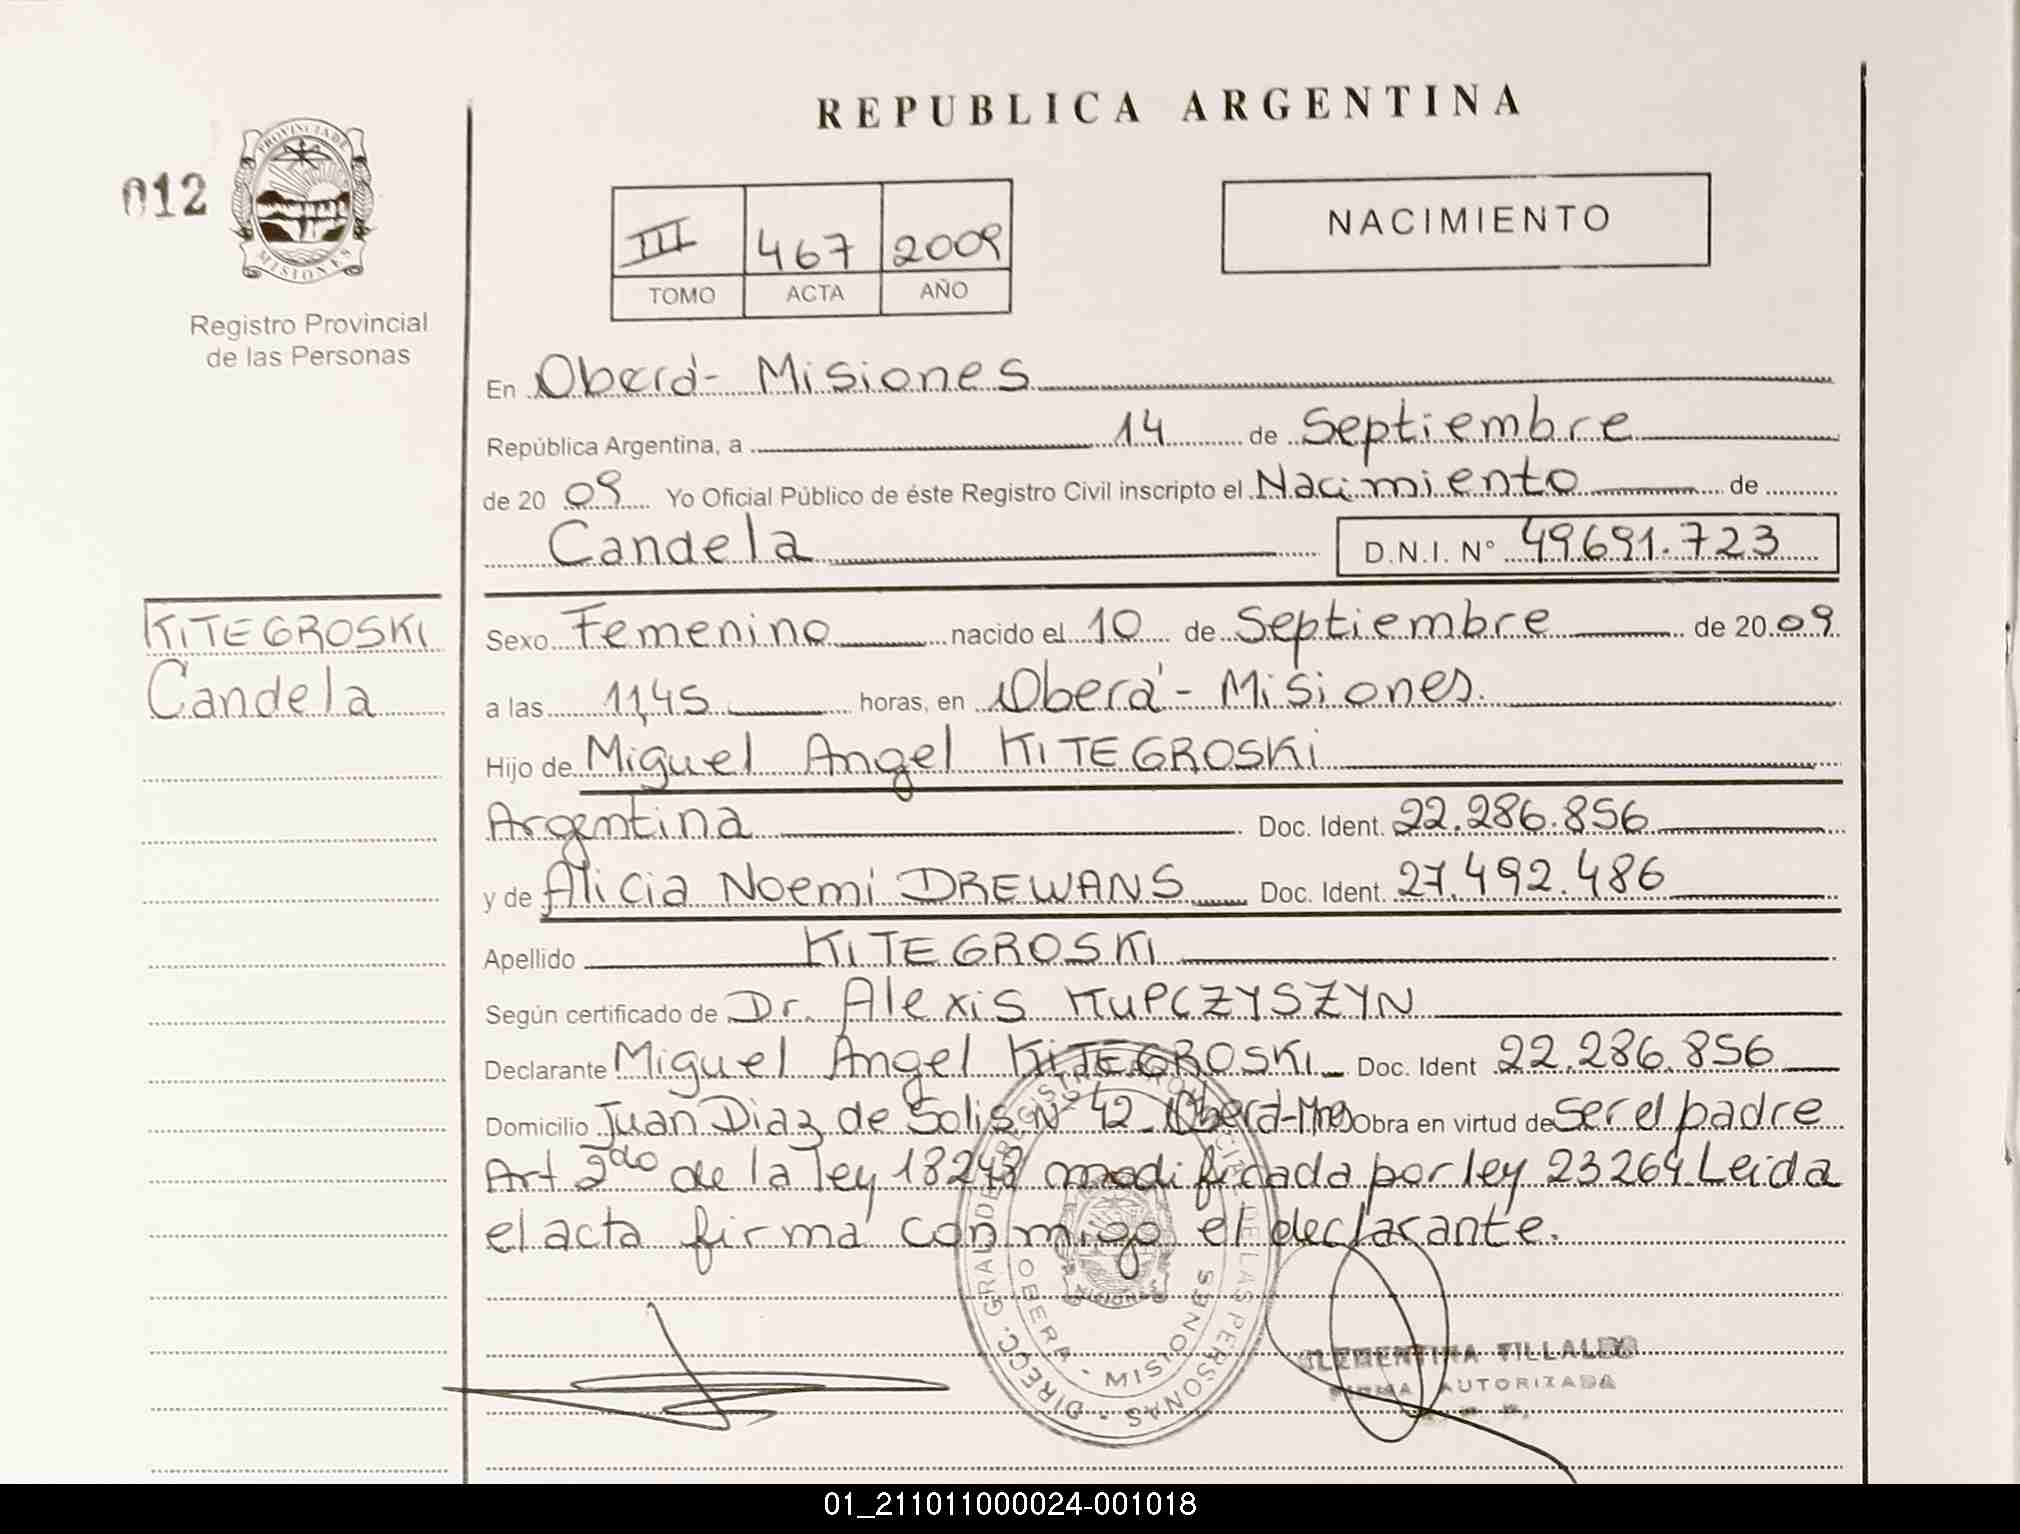 REPUBLICA ARGENTINA
012
PROVINCIA DE
MISIONES
Registro Provincial
de las Personas
III 467 2009
TOMO ACTA AÑO
NACIMIENTO
En Oberá - Misiones
República Argentina, a 14 de Septiembre
de 20 09 Yo Oficial Público de éste Registro Civil inscripto el Nacimiento de
Candela D.N.I. Nº 49691.723
KITEGROSKI
Candela
Sexo Femenino nacido el 10 de Septiembre de 20 09
a las 11,45 horas, en Oberá - Misiones.
Hijo de Miguel Angel KITEGROSKI
Argentina Doc. Ident. 22.286.856
y de Alicia Noemi DREWANS Doc. Ident. 27.492.486
Apellido KITEGROSKI
Según certificado de Dr. Alexis KUPCZYSZYN
Declarante Miguel Angel KITEGROSKI Doc. Ident 22.286.856
Domicilio Juan Diaz de Solis Nº 42 - Oberá-Mnes Obra en virtud de Ser el padre
Art 2do de la ley 18248 modificada por ley 23264 Leida
el acta firma conmigo el declarante.
DIRECC. GRAL DE REGISTRO PROVINCIAL DE LAS PERSONAS
OBERA - MISIONES
MISIONES
CLEMENTINA
FIRMA AUTORIZADA
01_211011000024-001018